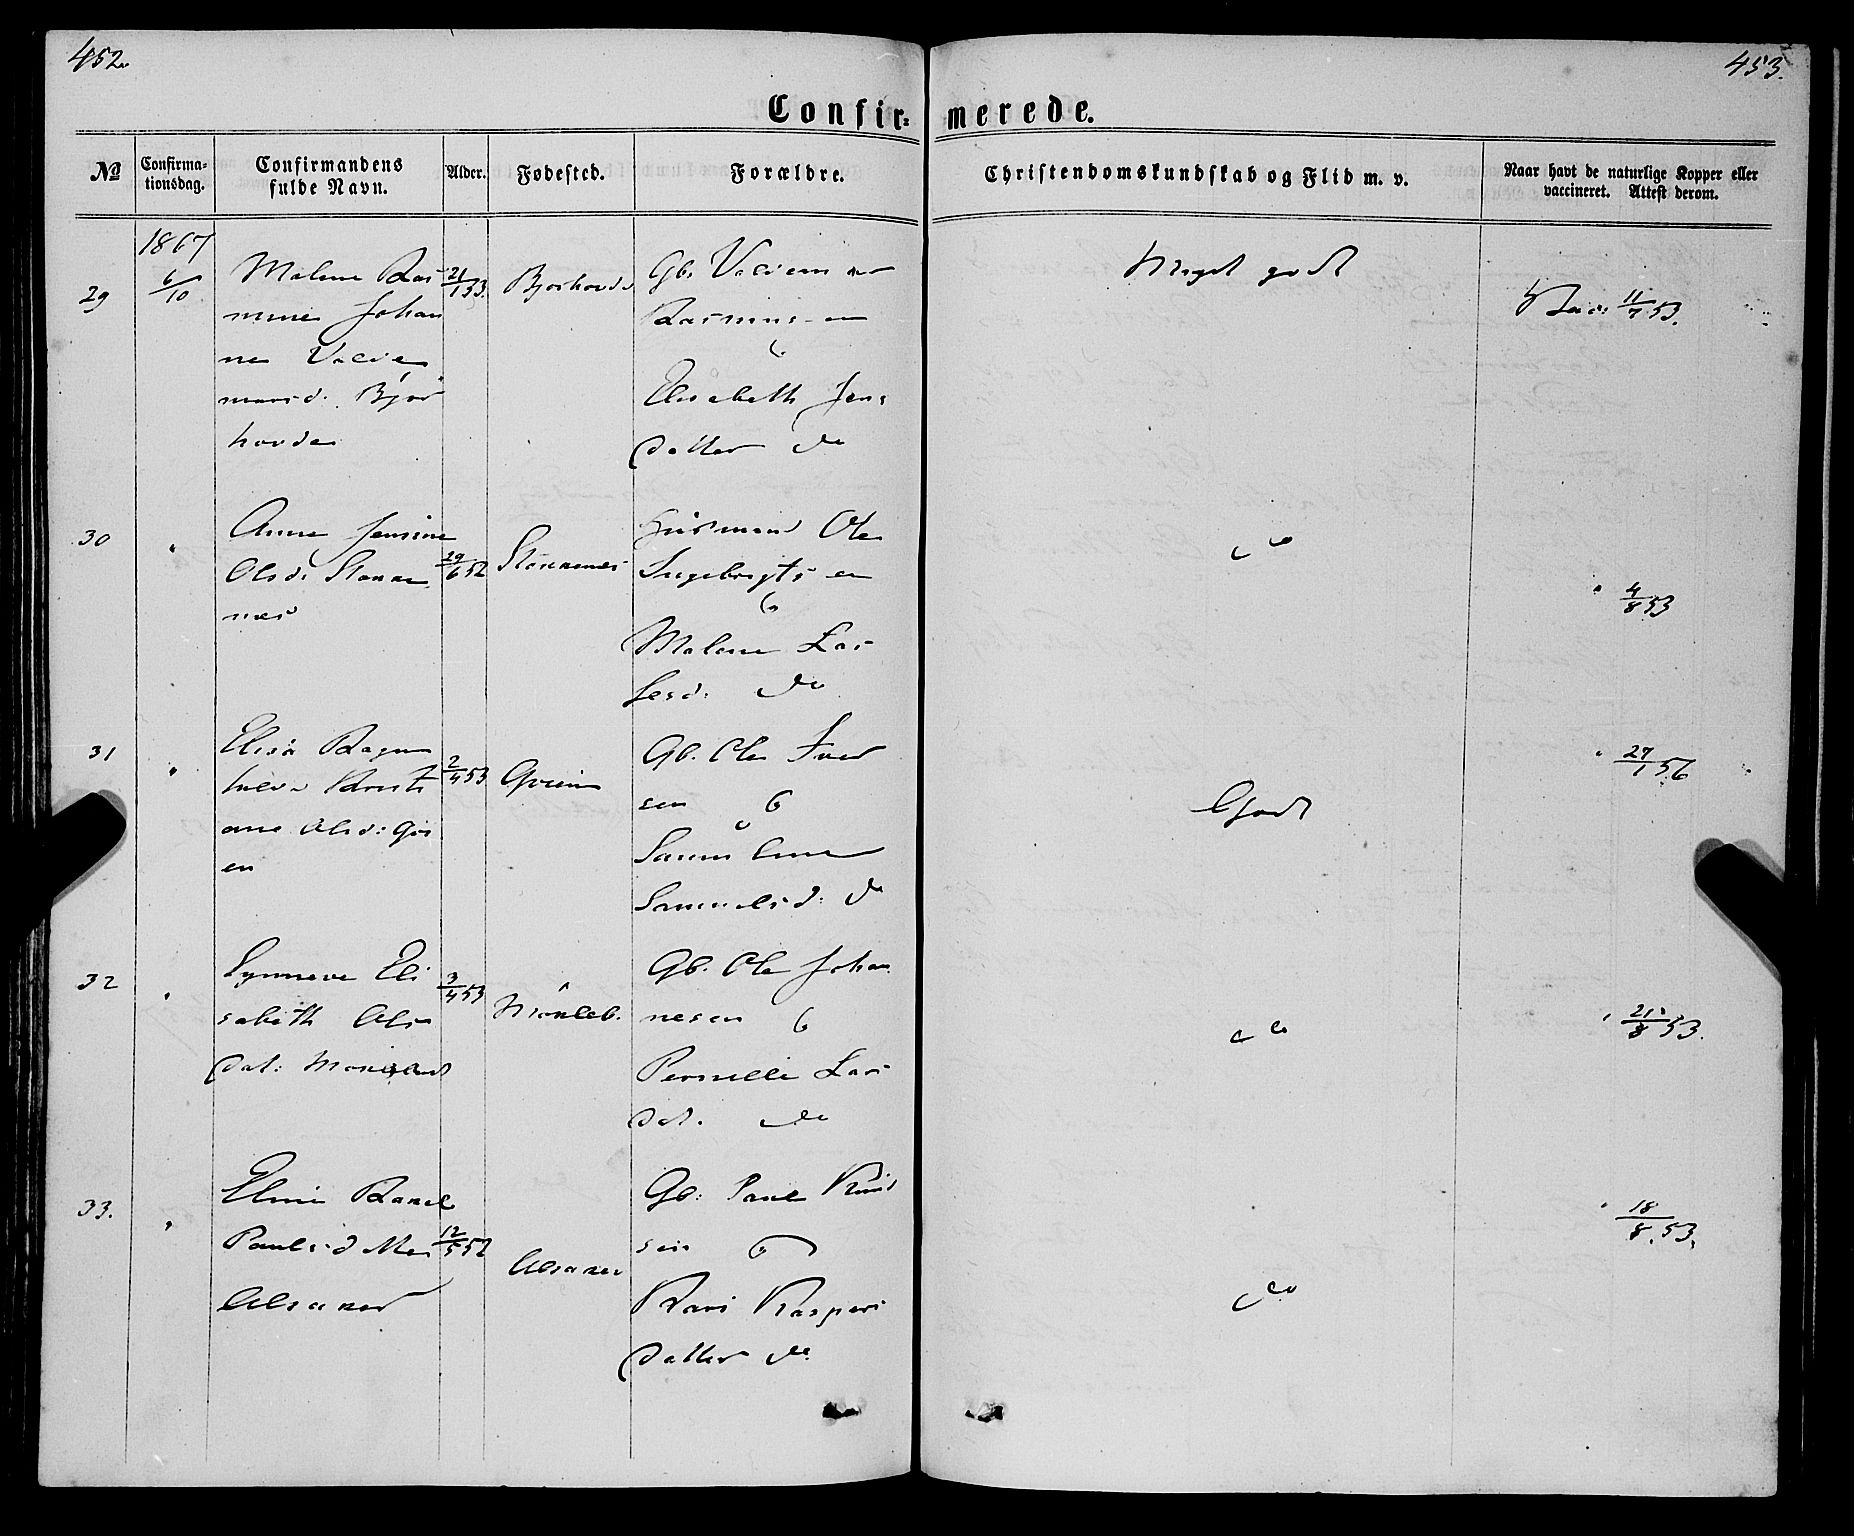 452.
453.
Confir- merede.
No
Confirma-
tionsdag.
Confirmandens
fulde Navn.
Alder.
Fødested.
Forældre.
Christendomskundskab og Flid m. v.
Naar havt de naturlige Kopper eller
vaccineret. Attest derom.
1867
29
6/10
Malene Ras
mine Johan
ne Valde
marsd. Bjør
hovde
21/1 53.
Bjørhovde
Gb. Valdemar
Rasmussen
&
Elisabeth Jens
datter do
Meget godt
Vacc: 11/7 53.
30
"
Anne Jensine
Olsd: Stonge
nes
29/6 52
Husmand Ole
Ingebrigts en
&
Malene Las
sesd: do
do
" 4/8 53
31
"
Elisa Ragn
hild Kristi
ane Olsd:
en
2/4 53
Gb. Ole Iver
sen &
Samuelsd: do
Godt
" 27/1 56
32
"
Synneva Eli
sabeth Ols
dat:
3/4 53
Gb. Ole Johan
nesen &
Pernille Lars
dat. do
do
" 21/8 53.
33.
"
Rakel
Paulsd
Alsaker
12/5 52
Alsaker
Gb: Paul Knud
sen &
Kari Kaspers
datter do
do
" 18/8. 53.